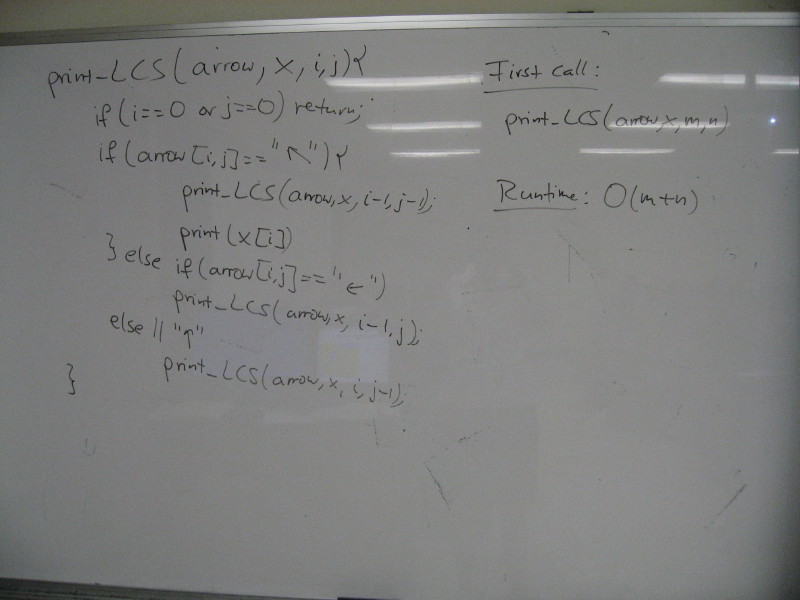 print_LCS(arrow, X, i, j){
if (i==0 or j==0) return;
if (arrow[i,j]=="↖"){
print_LCS(arrow, x, i-1, j-1);
print (x[i])
} else if (arrow[i,j]=="←")
print_LCS(arrow, x, i-1, j);
else || "↑"
print_LCS(arrow, x, i, j-1);
}
First call:
print_LCS(arrow, x, m, n)
Runtime: O(m+n)